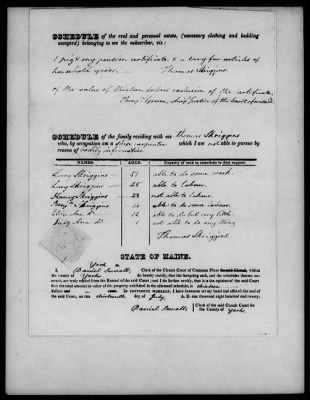 SCHEDULE of the real and personal estate, (necessary clothing and bedding
excepted) belonging to me the subscriber, viz:
1 pig & my pension certificate & a very few articles of
household goods. Thomas Skriggins
of the value of thirteen dollars exclusive of the certificate,
Benj Greene, Chief Justice of the Court aforesaid.
SCHEDULE of the family residing with me Thomas Skriggins
who, by occupation am a Ship carpenter which I am not able to pursue by
reason of bodily infirmities.
NAMES. AGES. Capacity of each to contribute to their support.
Lucy Skriggins 51 able to do some work.
Lucy Skriggins 25 able to labour.
Nancy Skriggins 23 not able to labour.
Skriggins 14 able to do some labour.
Eliza 12 able to do but very little.
1 not able to do any thing
Thomas Skriggins.
STATE OF MAINE.
York ss
Daniel Sewall Clerk of the Circuit Court of Common Pleas within
the county of York do hereby certify, that the foregoing oath, and the schedules thereto annexed,
are truly copied from the Record of the said Court and I do further certify, that it is the opinion of the said Court
that the total amount in value of the property exhibited in the aforesaid schedule, is thirteen
dollars IN TESTIMONY WHEREOF, I have hereunto set my hand and affixed the seal of
the said Court, on this thirteenth day of July, A. D. one thousand eight hundred and twenty.
Daniel Sewall Clerk of the said Circuit Court for
the County of York.